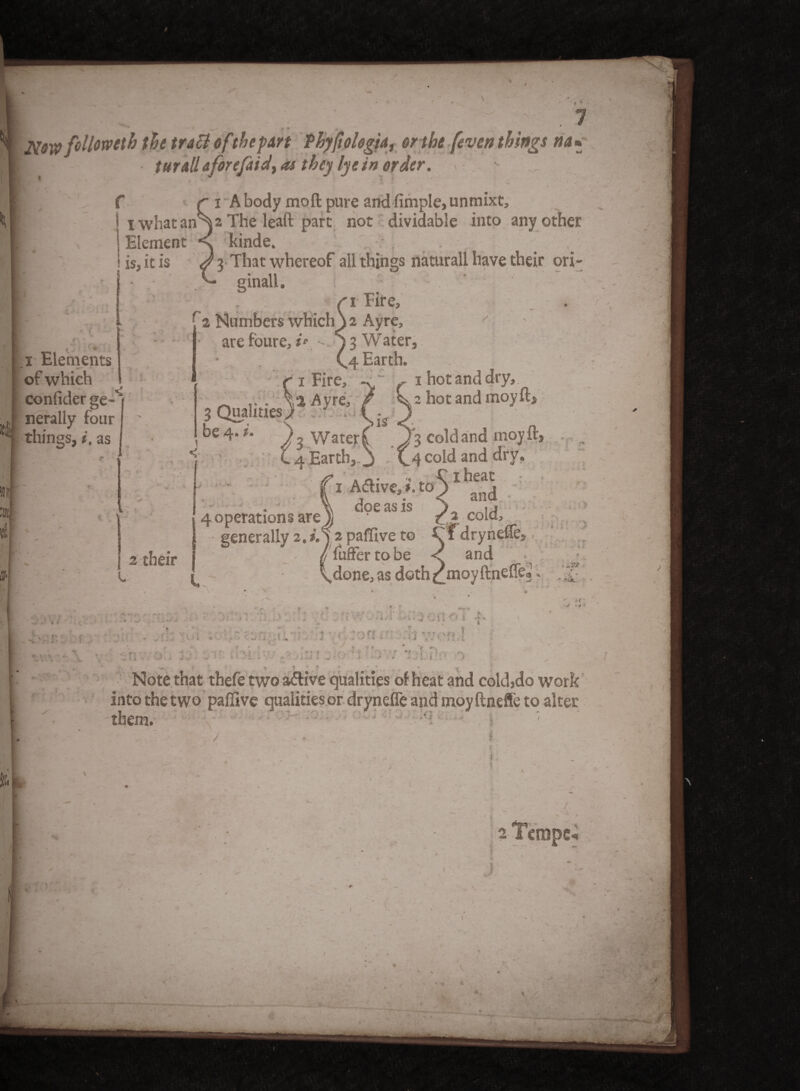 7
Now followeth the tract of the part Phyſiologia, or the ſeven things na-
turall aforeſaid, as they lye in order.
1 Elements
of which
conſider ge-
nerally four
things, i. as
1 what an
Element
is, it is
1 A body moſt pure and ſimple, unmixt,
2 The leaſt part not dividable into any other
kinde.
3 That whereof all things naturall have their ori-
ginall.
2 their
2 Numbers which
are foure, i.
1 Fire,
2 Ayre,
3 Water,
4 Earth.
3 Qualities
be 4. i.
1 Fire,
2 Ayre,
3 Water
4 Earth,
is
1 hot and dry,
2 hot and moyſt,
3 cold and moyſt,
4 cold and dry.
4 operations are
generally 2. i.
1 Active, i. to
doe as is
1 heat
and
2 cold,
2 paſſive to
ſuffer to be
done, as doth
1 dryneſſe,
and
moyſtneſſe.
Note that theſe two active qualities of heat and cold, do work
into the two paſſive qualities or dryneſſe and moyſtneſſe to alter
them.
2 Tempe-